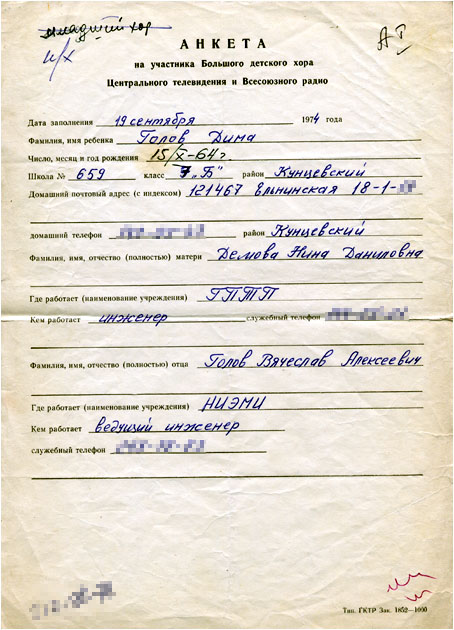 младший хор
и/х
А I
АНКЕТА
на участника Большого детского хора
Центрального телевидения и Всесоюзного радио
Дата заполнения 19 сентября 1974 года
Фамилия, имя ребенка Голов Дима
Число, месяц и год рождения 15/X-64 г.
Школа № 659 класс „Б" район Кунцевский
Домашний почтовый адрес (с индексом) 121467 Ельнинская 18-1-
домашний телефон район Кунцевский
Фамилия, имя, отчество (полностью) матери Демова Нина Даниловна
Где работает (наименование учреждения) ГПТП
Кем работает инженер служебный телефон
Фамилия, имя, отчество (полностью) отца Голов Вячеслав Алексеевич
Где работает (наименование учреждения) НИЭМИ
Кем работает ведущий инженер
служебный телефон
Тип. ГКТР Зак. 1852—1000